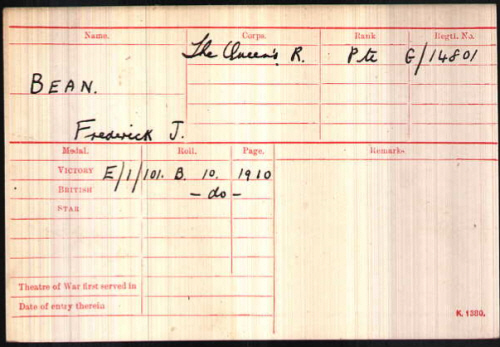 Name. Corps. Rank Regtl. No.
The Queen's R. Pte G/14801
BEAN.
Frederick J.
Medal. Roll. Page. Remarks.
VICTORY E/1/101. B. 10. 1910
BRITISH - do -
STAR
Theatre of War first served in
Date of entry therein
K. 1380.